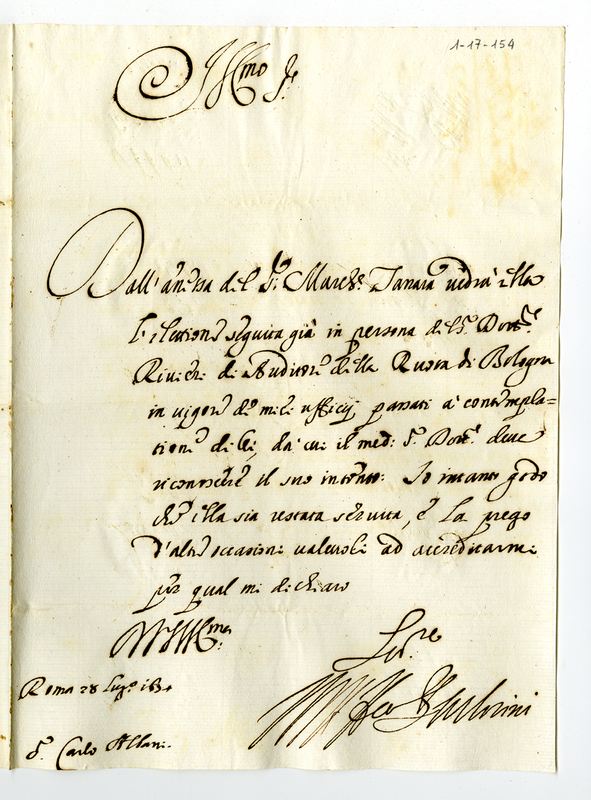 1-17-154
Ill.mo S.r
Dall'annessa del S.r March.e Tanara vedrà ella
l'elettione seguita già in persona del S.r Dott.re
di Auditore della Ruota di Bologna
in vigore de miei ufficij passati a contempla=
tione di lei, da cui il med.o S.r Dott.e deve
riconoscere il suo intento. Io intanto godo
che ella sia restata servita, e la prego
d'altre occasioni valevoli ad accreditarmi
per qual mi dichiaro
Di V.S. Ill.ma
Ser.re
Roma 28 Lug.o
S. Carlo Albani.